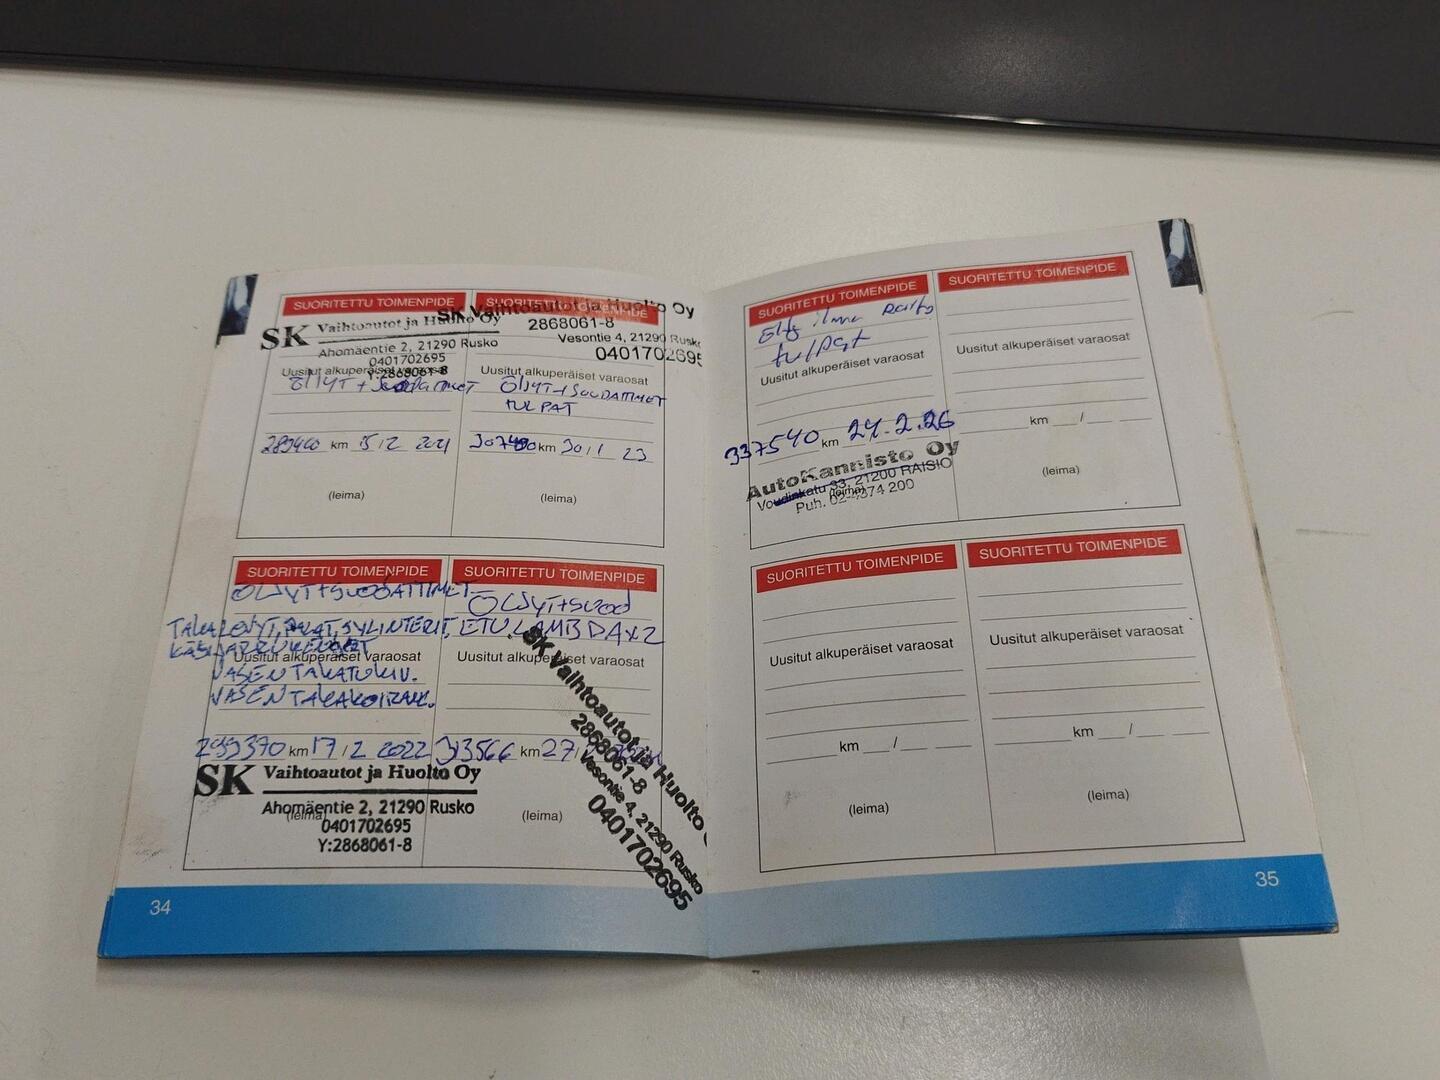 SUORITETTU TOIMENPIDE
SK Vaihtoautot ja Huolto Oy
Ahomäentie 2, 21290 Rusko
0401702695
Y:2868061-8
Uusitut alkuperäiset varaosat
ÖLJYT + SUODATTIMET
km 15/12 2021
(leima)
SUORITETTU TOIMENPIDE
SK Vaihtoautot ja Huolto Oy
2868061-8
Vesontie 4, 21290 Rusko
0401702695
Uusitut alkuperäiset varaosat
ÖLJYT + SUODATTIMET
TULPAT
km 30/1 23
(leima)
SUORITETTU TOIMENPIDE
ÖLJYT+SUODATTIMET
TAKALEVYT, PALAT, SYLINTERIT,
Uusitut alkuperäiset varaosat
VASEN TAKATUKIV.
VASEN TAKAKOIRANL.
299370 km 17/2 2022
SK Vaihtoautot ja Huolto Oy
Ahomäentie 2, 21290 Rusko
(leima)
0401702695
Y:2868061-8
SUORITETTU TOIMENPIDE
ÖLJYT+SUOD
ETU LAMBDA X2
Uusitut alkuperäiset varaosat
313566 km 27/
SK Vaihtoautot ja Huolto
2868061-8
Vesontie 4, 21290 Rusko
0401702695
(leima)
34
SUORITETTU TOIMENPIDE
tulpat
Uusitut alkuperäiset varaosat
337540 km 24.2.26
AutoKannisto Oy
Voudinkatu 33, 21200 RAISIO
(leima)
Puh. 02-4374 200
SUORITETTU TOIMENPIDE
Uusitut alkuperäiset varaosat
km / 
(leima)
SUORITETTU TOIMENPIDE
Uusitut alkuperäiset varaosat
km /
(leima)
SUORITETTU TOIMENPIDE
Uusitut alkuperäiset varaosat
km /
(leima)
35